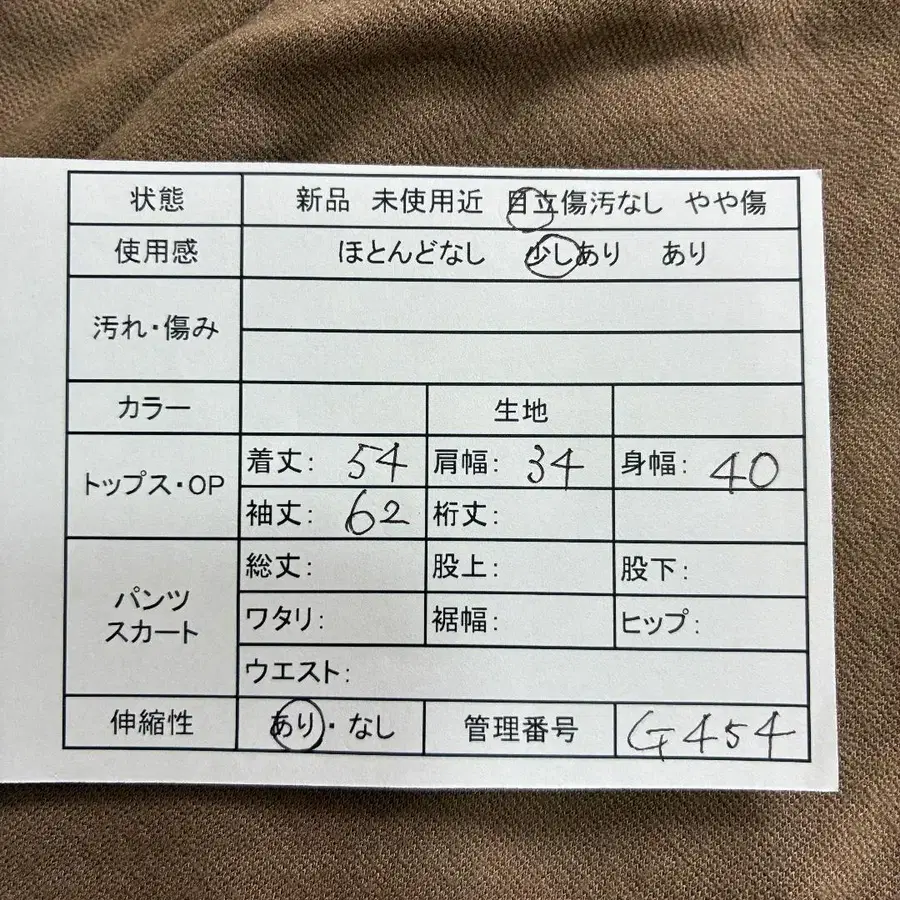 状態 新品 未使用近 目立傷汚なし やや傷
使用感 ほとんどなし 少しあり あり
汚れ・傷み
カラー 生地
トップス・OP
着丈: 54 肩幅: 34 身幅: 40
袖丈: 62 裄丈:
パンツ
スカート
総丈: 股上: 股下:
ワタリ: 裾幅: ヒップ:
ウエスト:
伸縮性 あり・なし 管理番号 G454